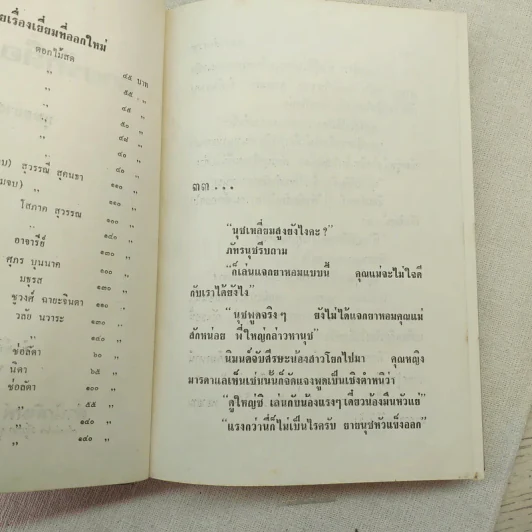 ยเรื่องเยี่ยมที่ออกใหม่
ดอกไม้สด
๔๕ บาท
" ๕๕ "
" ๔๕ "
" ๕๐ "
" ๔๘ "
" ๔๐ "
บ) สุวรรณี สุคนธา ๔๐ "
มจบ) " ๑๑๐ "
โสภาค สุวรรณ ๑๐๐ "
" ๑๔๐ "
อาจารีย์ ๑๓๐ "
ศุภร บุนนาค ๑๐๐ "
มธุรส ๑๓๐ "
ชูวงศ์ ฉายะจินดา ๑๑๐ "
วลัย นวาระ ๑๓๐ "
ช่อลัดา ๖๐ "
นิดา ๖๕ "
ช่อลัดา ๑๐๐ "
" ๕๕ "
" ๑๔๐ "
" ๑๔๐ "
" ๑๙๐ "
๓๓...
"นุชเหลี่ยมสูงยังไงคะ?"
ภัทรนุชรีบถาม
"ก็เล่นแจกยาหอมแบบนี้ คุณแม่จะไม่ใจดี
กับเราได้ยังไง"
"นุชพูดจริงๆ ยังไม่ได้แจกยาหอมคุณแม่
สักหน่อย พี่ใหญ่กล่าวหานุช"
นิมนต์จับศีรษะน้องสาวโยกไปมา คุณหญิง
มารดาแลเห็นเช่นนั้นก็จัดแจงพูดเป็นเชิงตำหนิว่า
"ดูใหญ่ซิ เล่นกับน้องแรงๆ เดี๋ยวน้องมึนหัวแย่"
"แรงกว่านี้ก็ไม่เป็นไรครับ ยายนุชหัวแข็งออก"